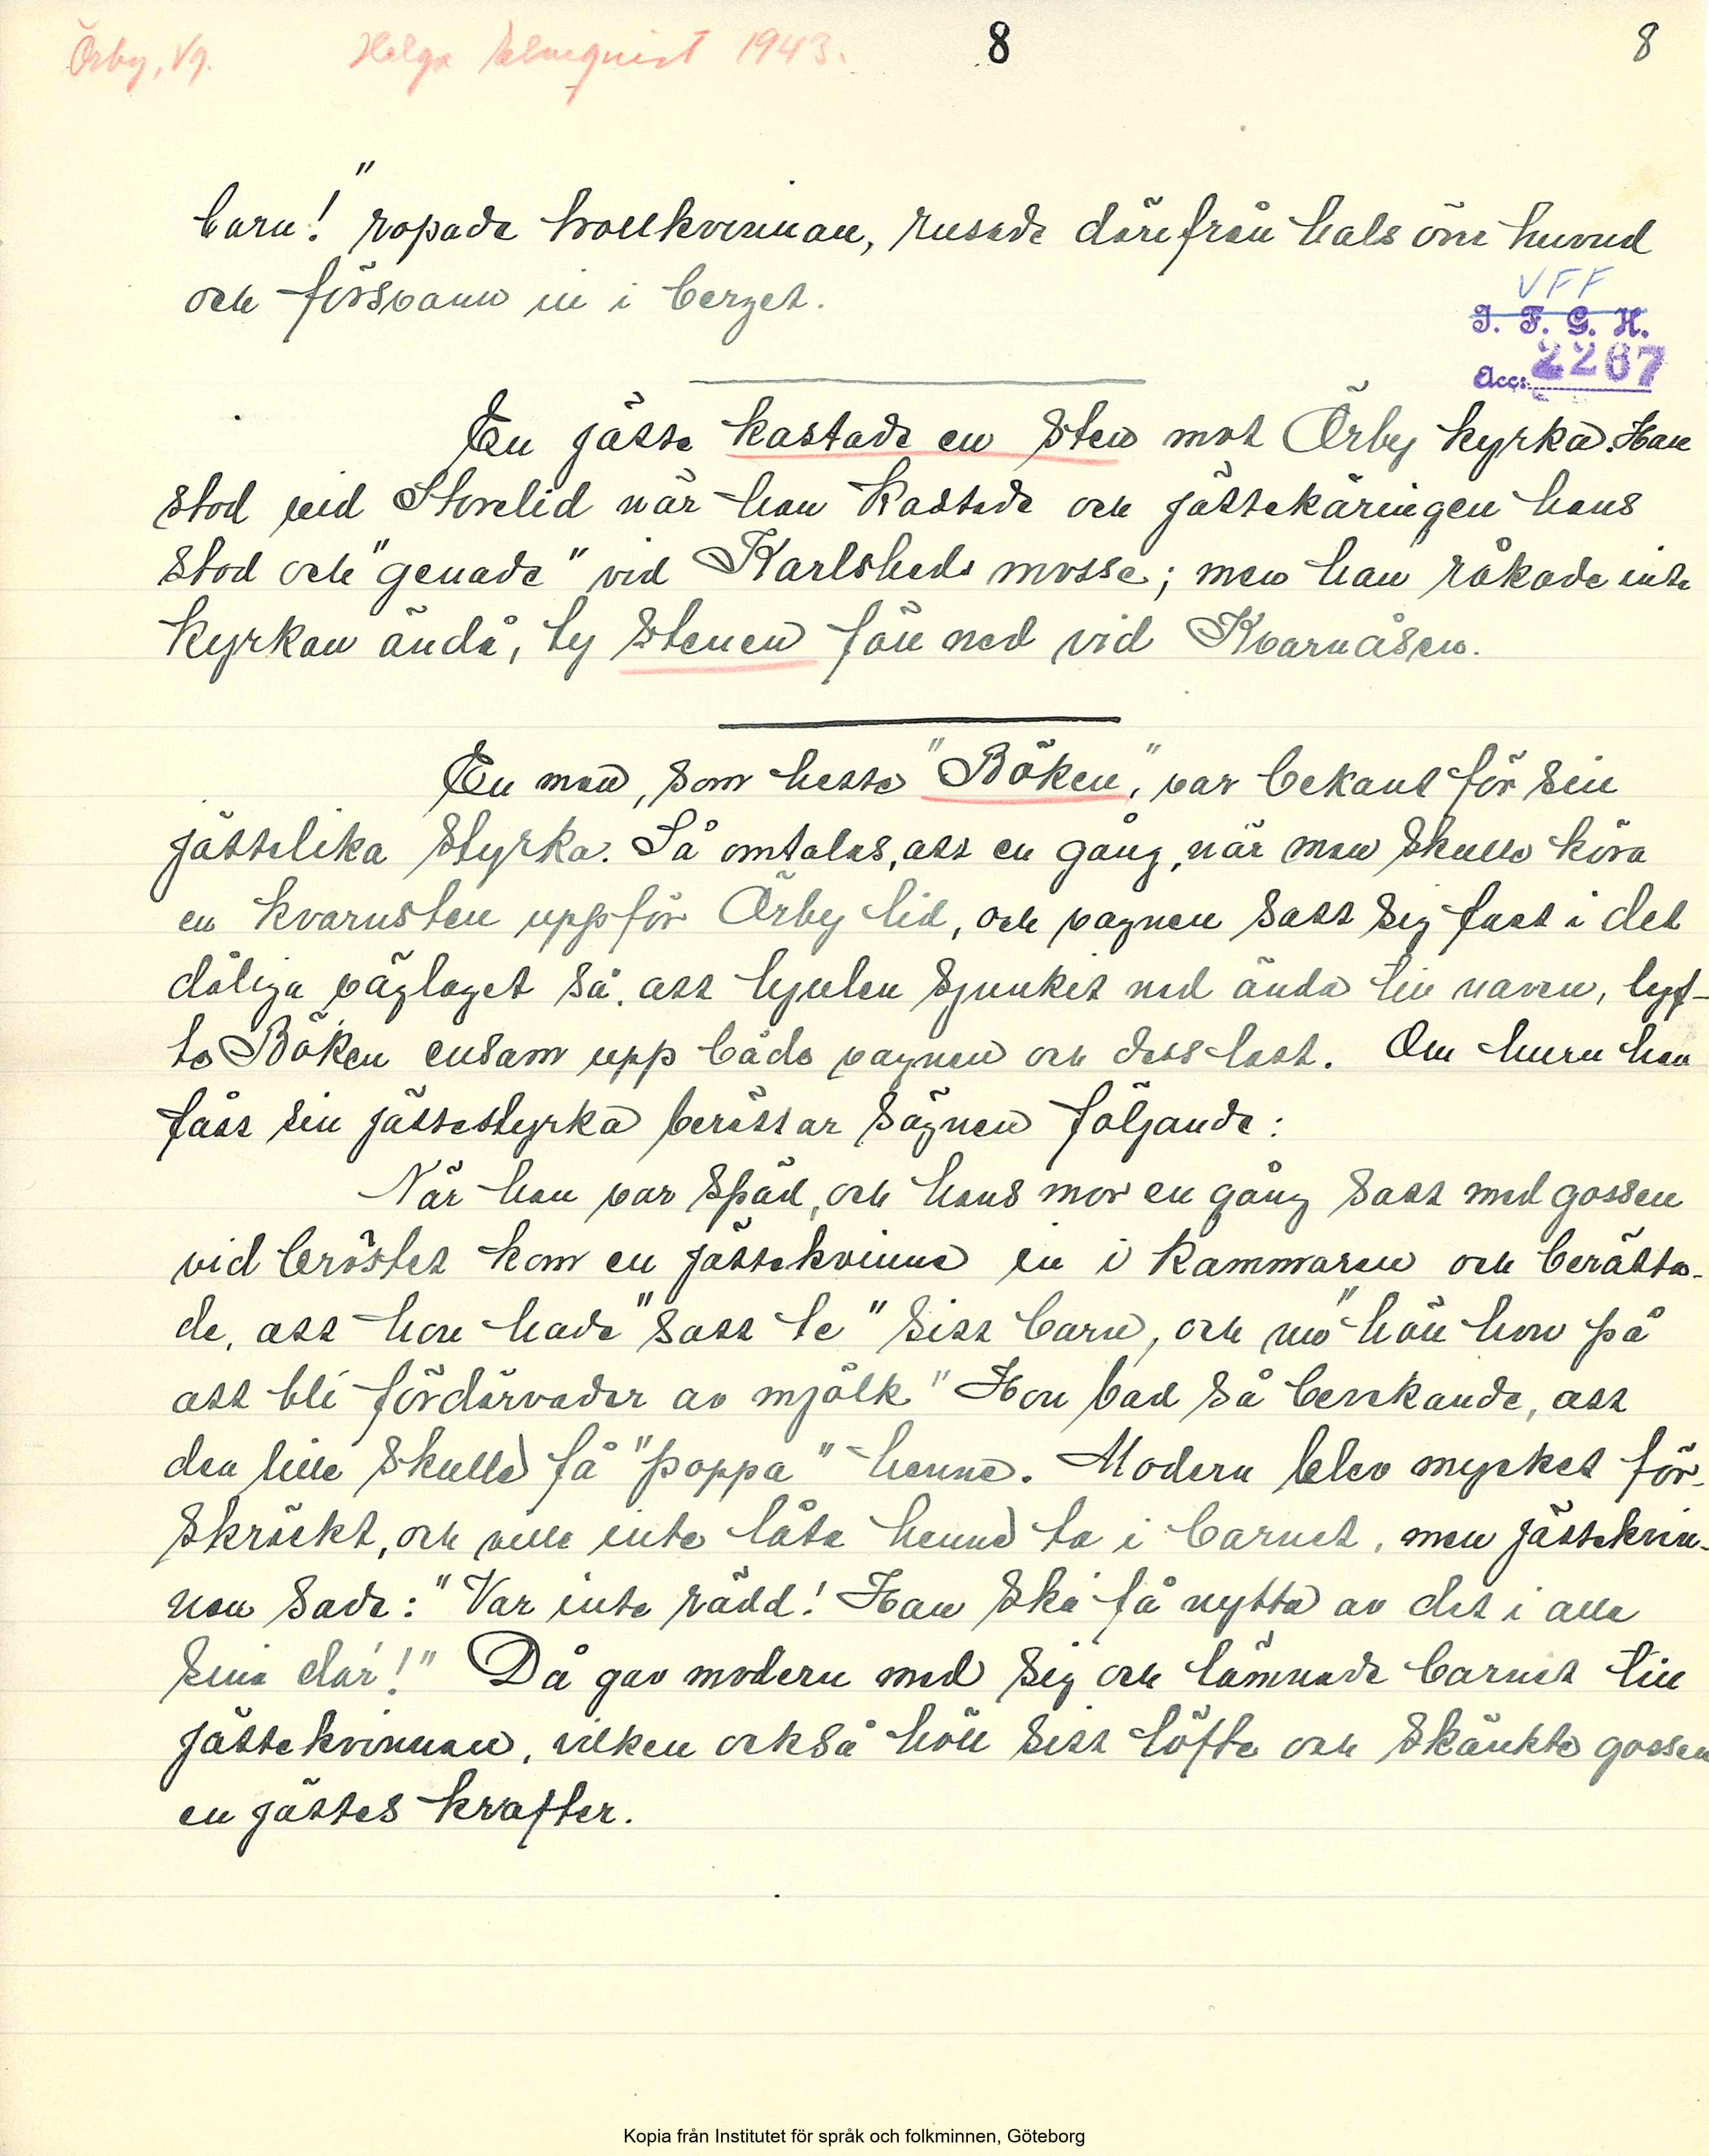 Örby, Vg. Helga 1943. 8 8
barn!" ropade trollkvinnan, rusade därifrån hals över huvud
och försvann in i berget.
VFF
I. F. G. H.
Acc. 2267
En jätte kastade en sten mot Örby kyrka. Han
stod vid Storelid när han kastade och jättekäringen hans
stod och "genade" vid Karlsheds mosse; men han råkade inte
kyrkan ändå, ty stenen föll ned vid Kvarnåsen.
En man, som hette "Böken," var bekant för sin
jättelika styrka. Så omtalas, att en gång, när man skulle köra
en kvarnsten uppför Örby lid, och vagnen satt sig fast i det
dåliga väglaget så, att hjulen sjunkit ned ända till naven, lyf-
te Böken ensam upp både vagnen och dess last. Om huru han
fått sin jättestyrka berättar sägnen följande:
När han var späd, och hans mor en gång satt med gossen
vid bröstet kom en jättekvinna in i kammaren och berätta-
de, att hon hade "satt te" sitt barn, och nu "höll hon på
att bli fördärvader av mjölk." Hon bad så bevekande, att
den lille skulle få "pappa" henne. Modern blev mycket för-
skräckt, och ville inte låta henne ta i barnet, men jättekvin-
nan sade: "Var inte rädd! Han ska få nytta av det i alla
sina da'r!" Då gav modern med sig och lämnade barnet till
jättekvinnan, vilken också höll sitt löfte och skänkte gossen
en jättes krafter.
Kopia från Institutet för språk och folkminnen, Göteborg